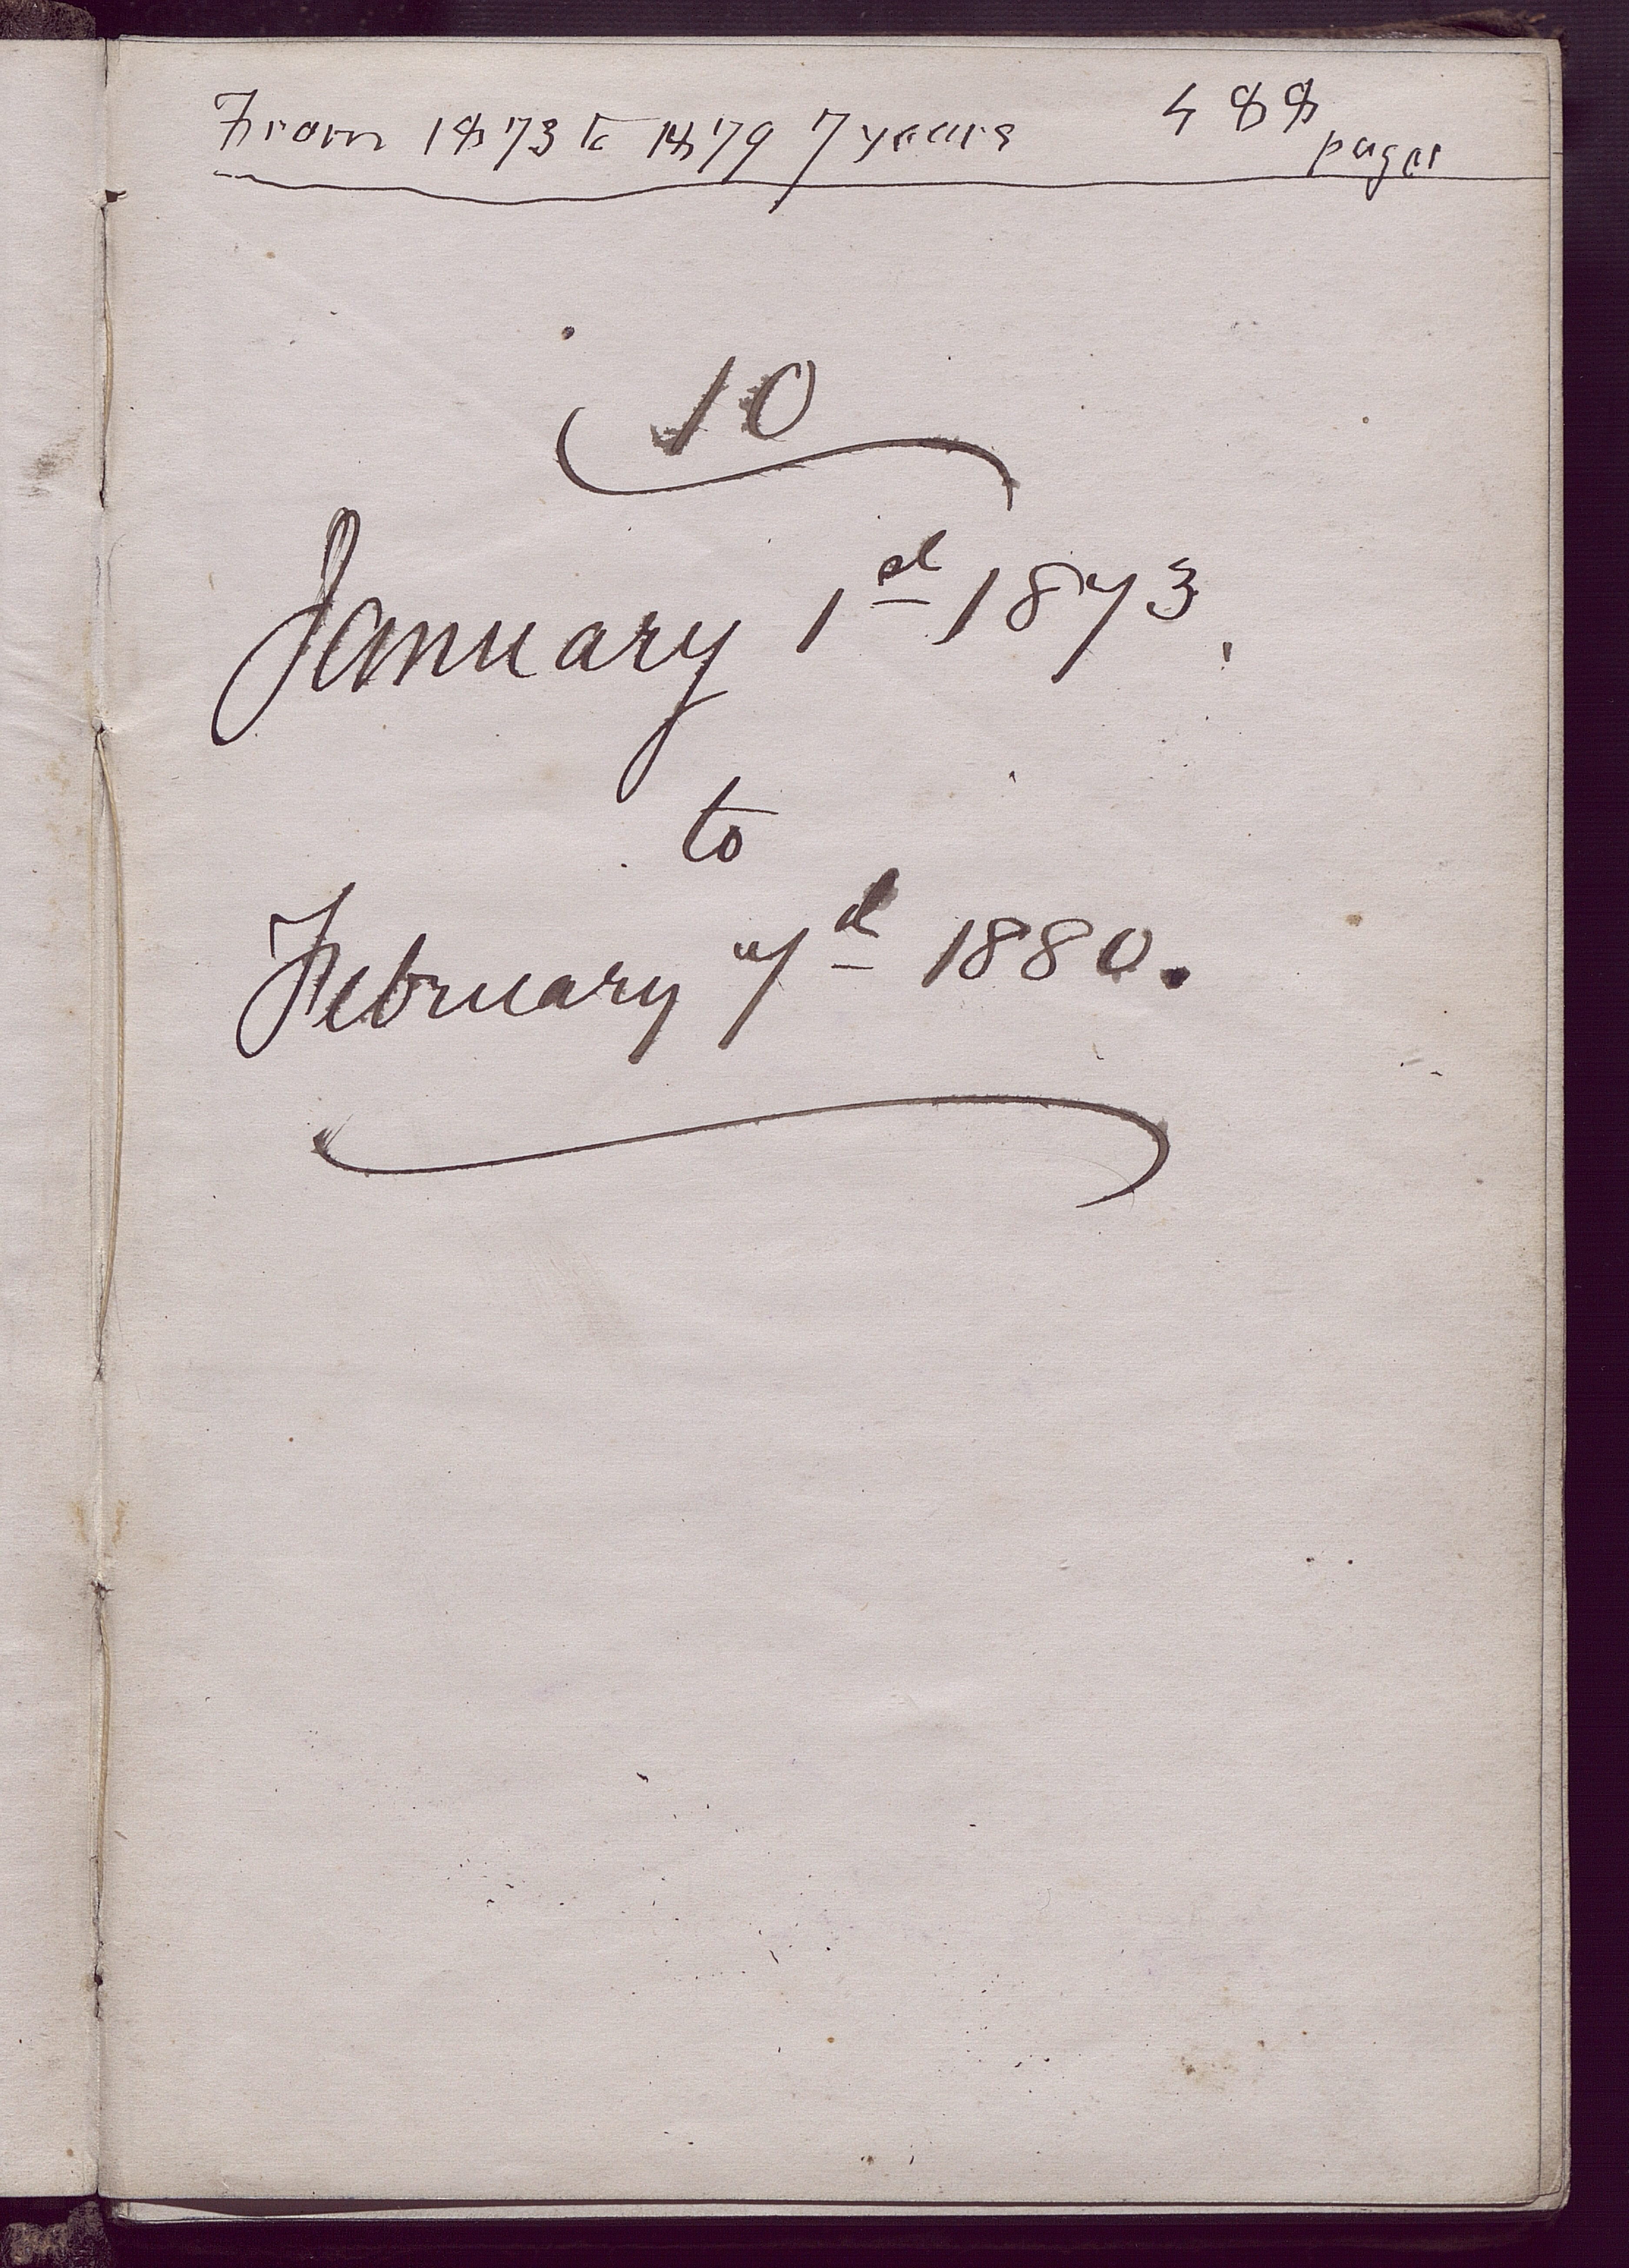 From 1873 to 1879 7 years 488 pages
10
January 1st 1873.
to
February 7d 1880.